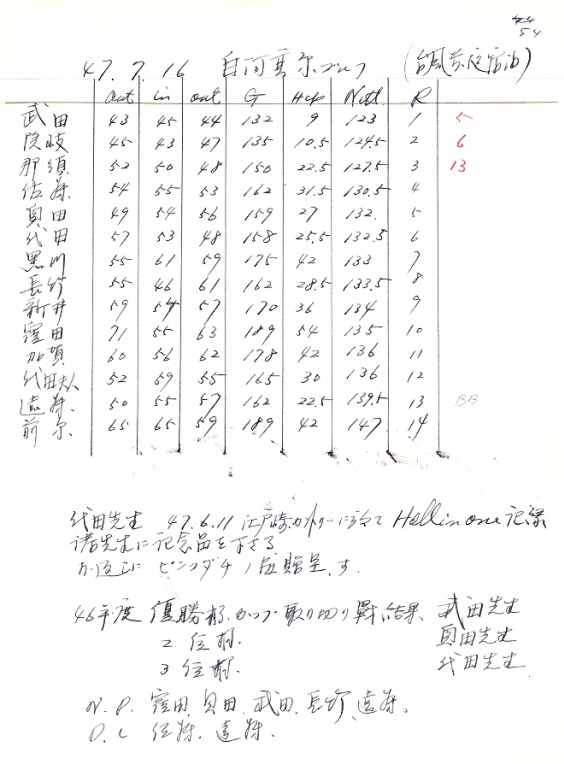 54
47. 7. 16 白河高原ゴルフ
out in out G Hcp Nett R
武田 43 45 44 132 9 123 1 5
隠岐 45 43 47 135 10.5 124.5 2 6
那須 52 50 48 150 22.5 127.5 3 13
佐藤 54 55 53 162 31.5 130.5 4
貝田 49 54 56 159 27 132. 5
代田 57 53 48 158 25.5 132.5 6
黒川 55 61 59 175 42 133 7
長野 55 46 61 162 28.5 133.5 8
新井 59 54 57 170 36 134 9
窪田 71 55 63 189 54 135 10
加賀 60 56 62 178 42 136 11
代田夫人 52 59 55 165 30 136 12
遠藤. 50 55 57 162 22.5 139.5 13 BB
前原 65 65 59 189 42 147 14
代田先生 47.6.11 江戸崎カントリーに於て Hall in one 記録
諸先生に記念品を下さる
贈呈す.
46年度 優勝杯.カップ取り切り戦結果、武田先生
2位杯. 貝田先生
3位杯. 代田先生
N. P. 窪田. 貝田. 武田. 長野. 遠藤.
D. C 佐藤. 遠藤.